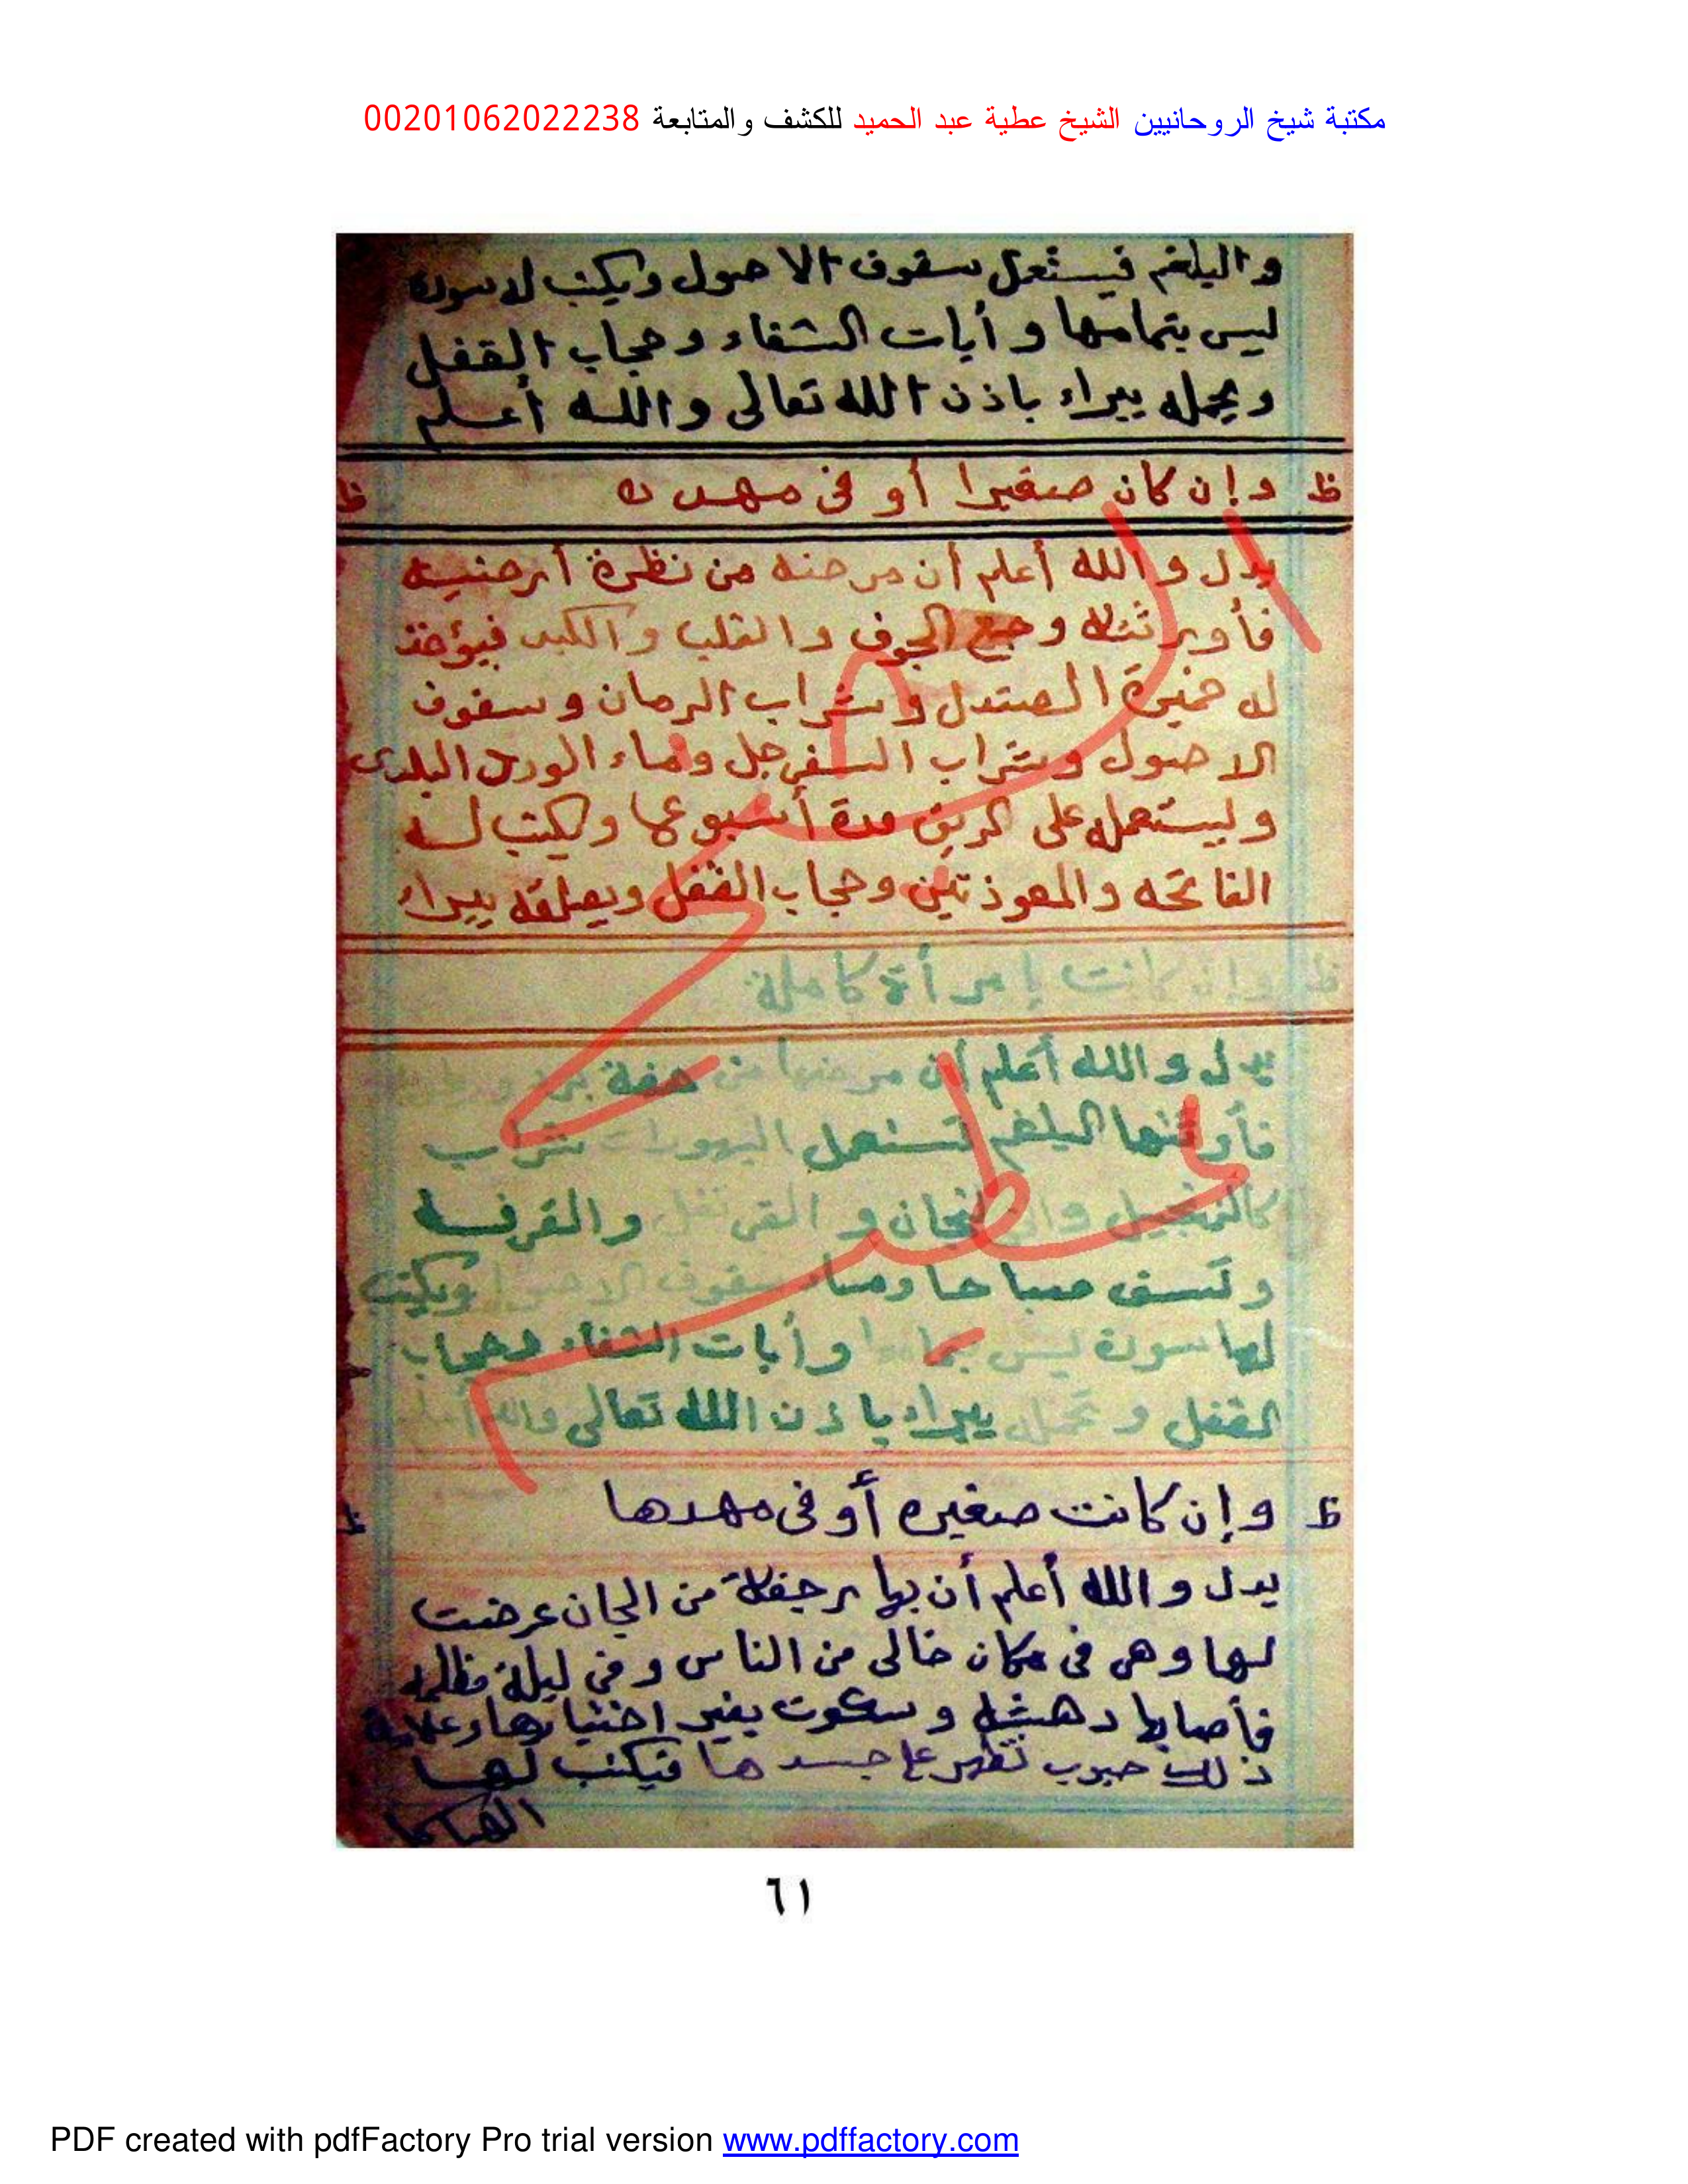 مكتبة شيخ الروحانيين الشيخ عطية عبد الحميد للكشف والمتابعة 00201062022238
والبلغم فيستعمل سقوف الاصول ويكتب له سورة
ليس بتمامها وأيات الشفاء وحجاب القفل
ويحمله يبراء باذن الله تعالى والله أعلم
ظ وإن كان صغيرا أو فى مهده ظ
يدل والله أعلم أن مرضه من نظرة أرضية
فأورثته وجع الجوف والقلب والكبد فيؤخذ
له خميرة الصندل وشراب الرمان وسفوف
الاصول وشراب السفرجل وماء الورد البلدى
وليستعمله على الريق مدة أسبوعا ويكتب له
الفاتحه والمعوذتين وحجاب القفل ويعلقه يبراء
ظ وإن كانت إمرأة كاملة
يدل والله أعلم أن مرضها من هفة
فأورثتها البلغم تستعمل شراب
كالزنجبيل والخلنجان والقرنفل والقرفه
وتسف صباحا ومساء سفوف الاصول ويكتب
لها سورة ليس بتمامها وأيات الشفاء وحجاب
القفل وتحمله يبراء باذن الله تعالى والله أعلم
ظ وإن كانت صغيره أو فى مهدها ظ
يدل والله أعلم أن بها رجفة من الجان عرضت
لها وهى فى مكان خالى من الناس وفى ليلة مظلمه
فأصابها دهشه وسكوت بغير اختيارها وعلامة
ذلك حبوب تظهر على جسدها فيكتب لها
الشيخ عطية
٦١
PDF created with pdfFactory Pro trial version www.pdffactory.com